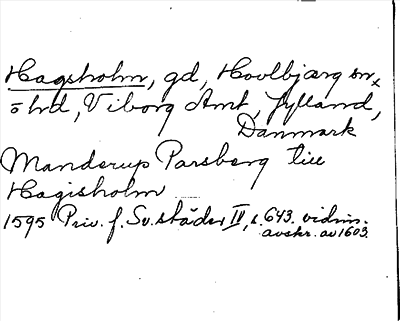 Hagsholm, gd, Hovlbjærg sn,
o hd, Viborg Amt, Jylland,
Danmark
Manderup Parsberg till
Hagisholm
1595 Priv. f. Sv. städer IV, s. 643. vidim.
avskr. av 1603.